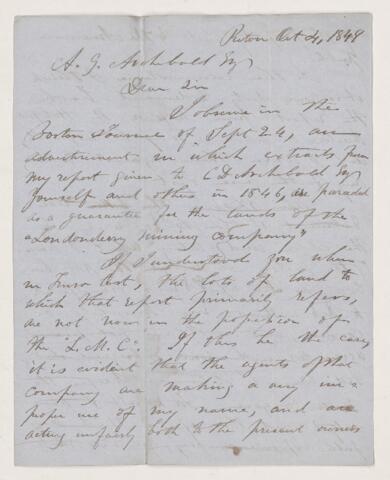 Pictou Oct 4, 1849
A. G. Archibald Esq
Dear Sir
I observe in the
Boston Journal of Sept 24, an
advertisement in which extracts from
my report given to C D Archibald Esq
Yourself and others in 1846, are paraded
as a guarantee for the lands of the
"Londonderry Mining Company"
If I understood you when
in Truro last, the lots of land to
which that report primarily refers,
are not now in the possession of
the "L. M. C." If this be the case
it is evident that the agents of that
company are making a very im-
proper use of my name, and are
acting unfairly both to the present owners